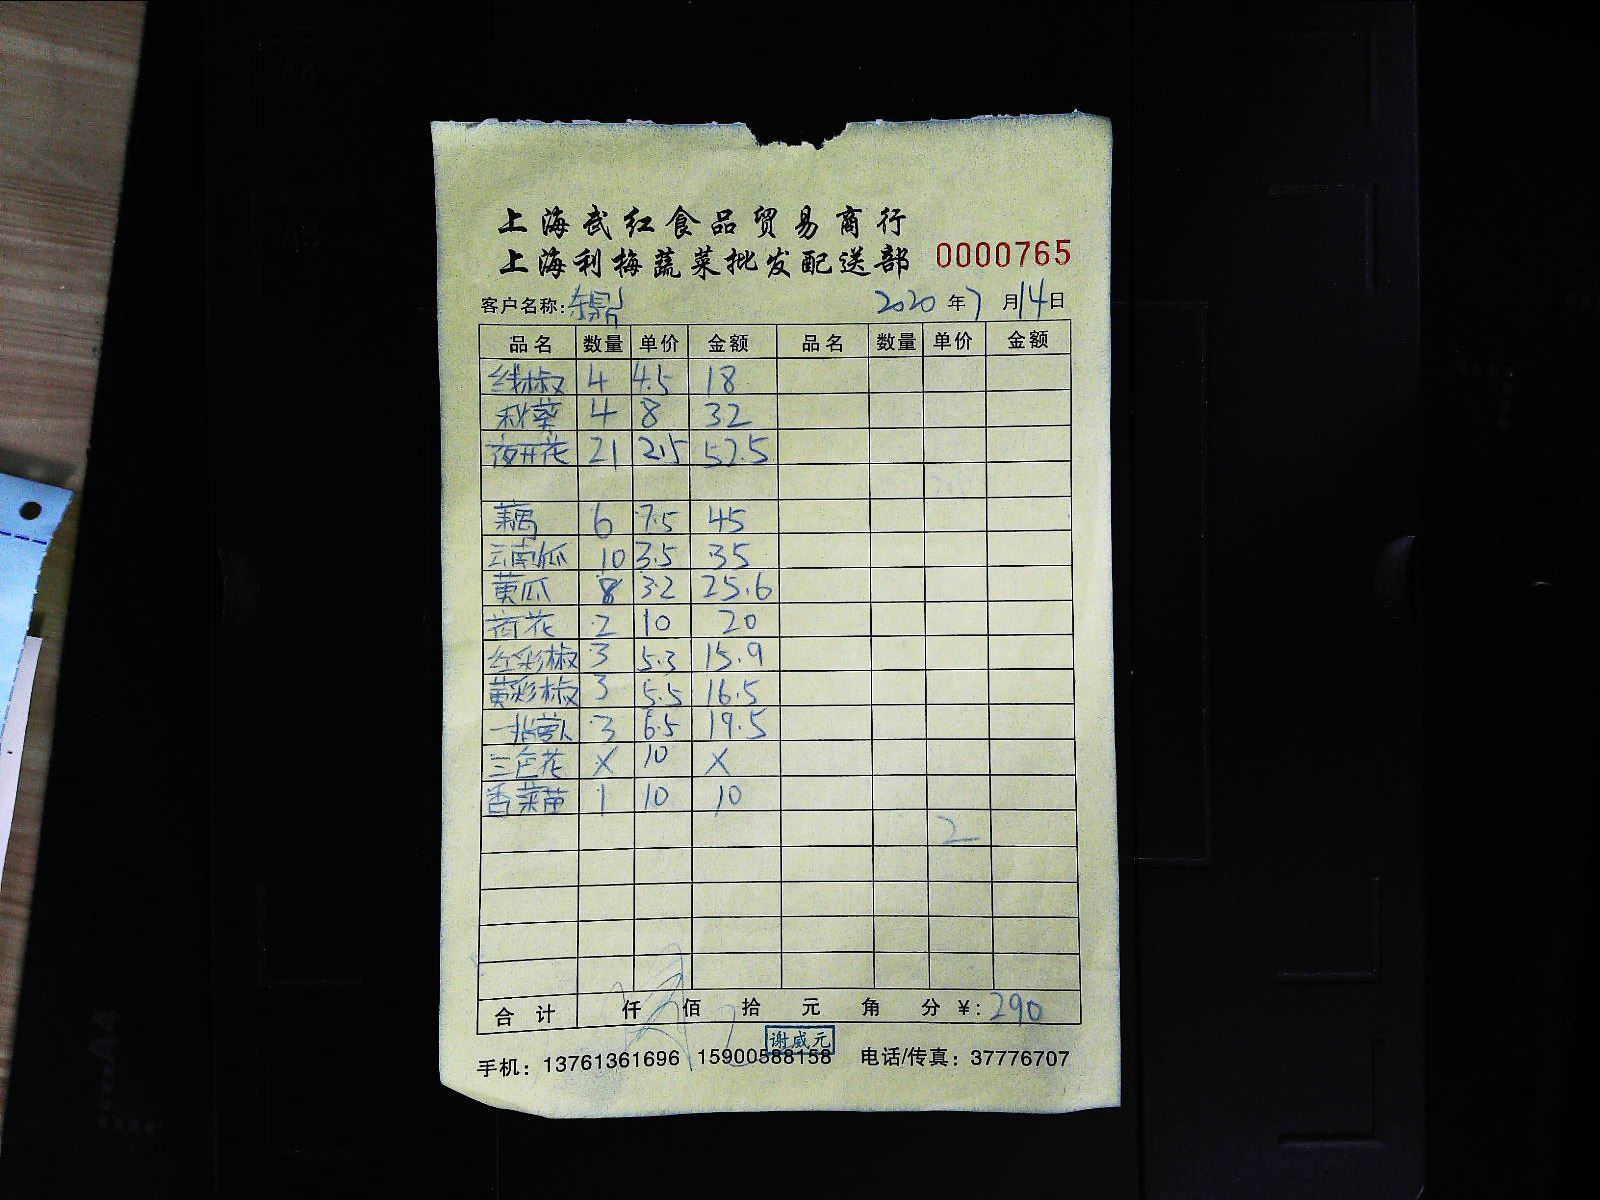 上海武红食品贸易商行
上海利梅蔬菜批发配送部 0000765
客户名称:东鼎 2020年7月14日
品名 数量 单价 金额 品名 数量 单价 金额
线椒 4 4.5 18
秋葵 4 8 32
夜开花 21 2.5 52.5
藕 6 7.5 45
云南瓜 10 3.5 35
黄瓜 8 3.2 25.6
荷花 2 10 20
红彩椒 3 5.3 15.9
黄彩椒 3 5.5 16.5
一指萝卜 3 6.5 19.5
三色花 X 10 X
香菜苗 1 10 10
2
合计 仟 佰 拾 元 角 分 ¥:290
谢威元
手机:13761361696 15900588158 电话/传真:37776707